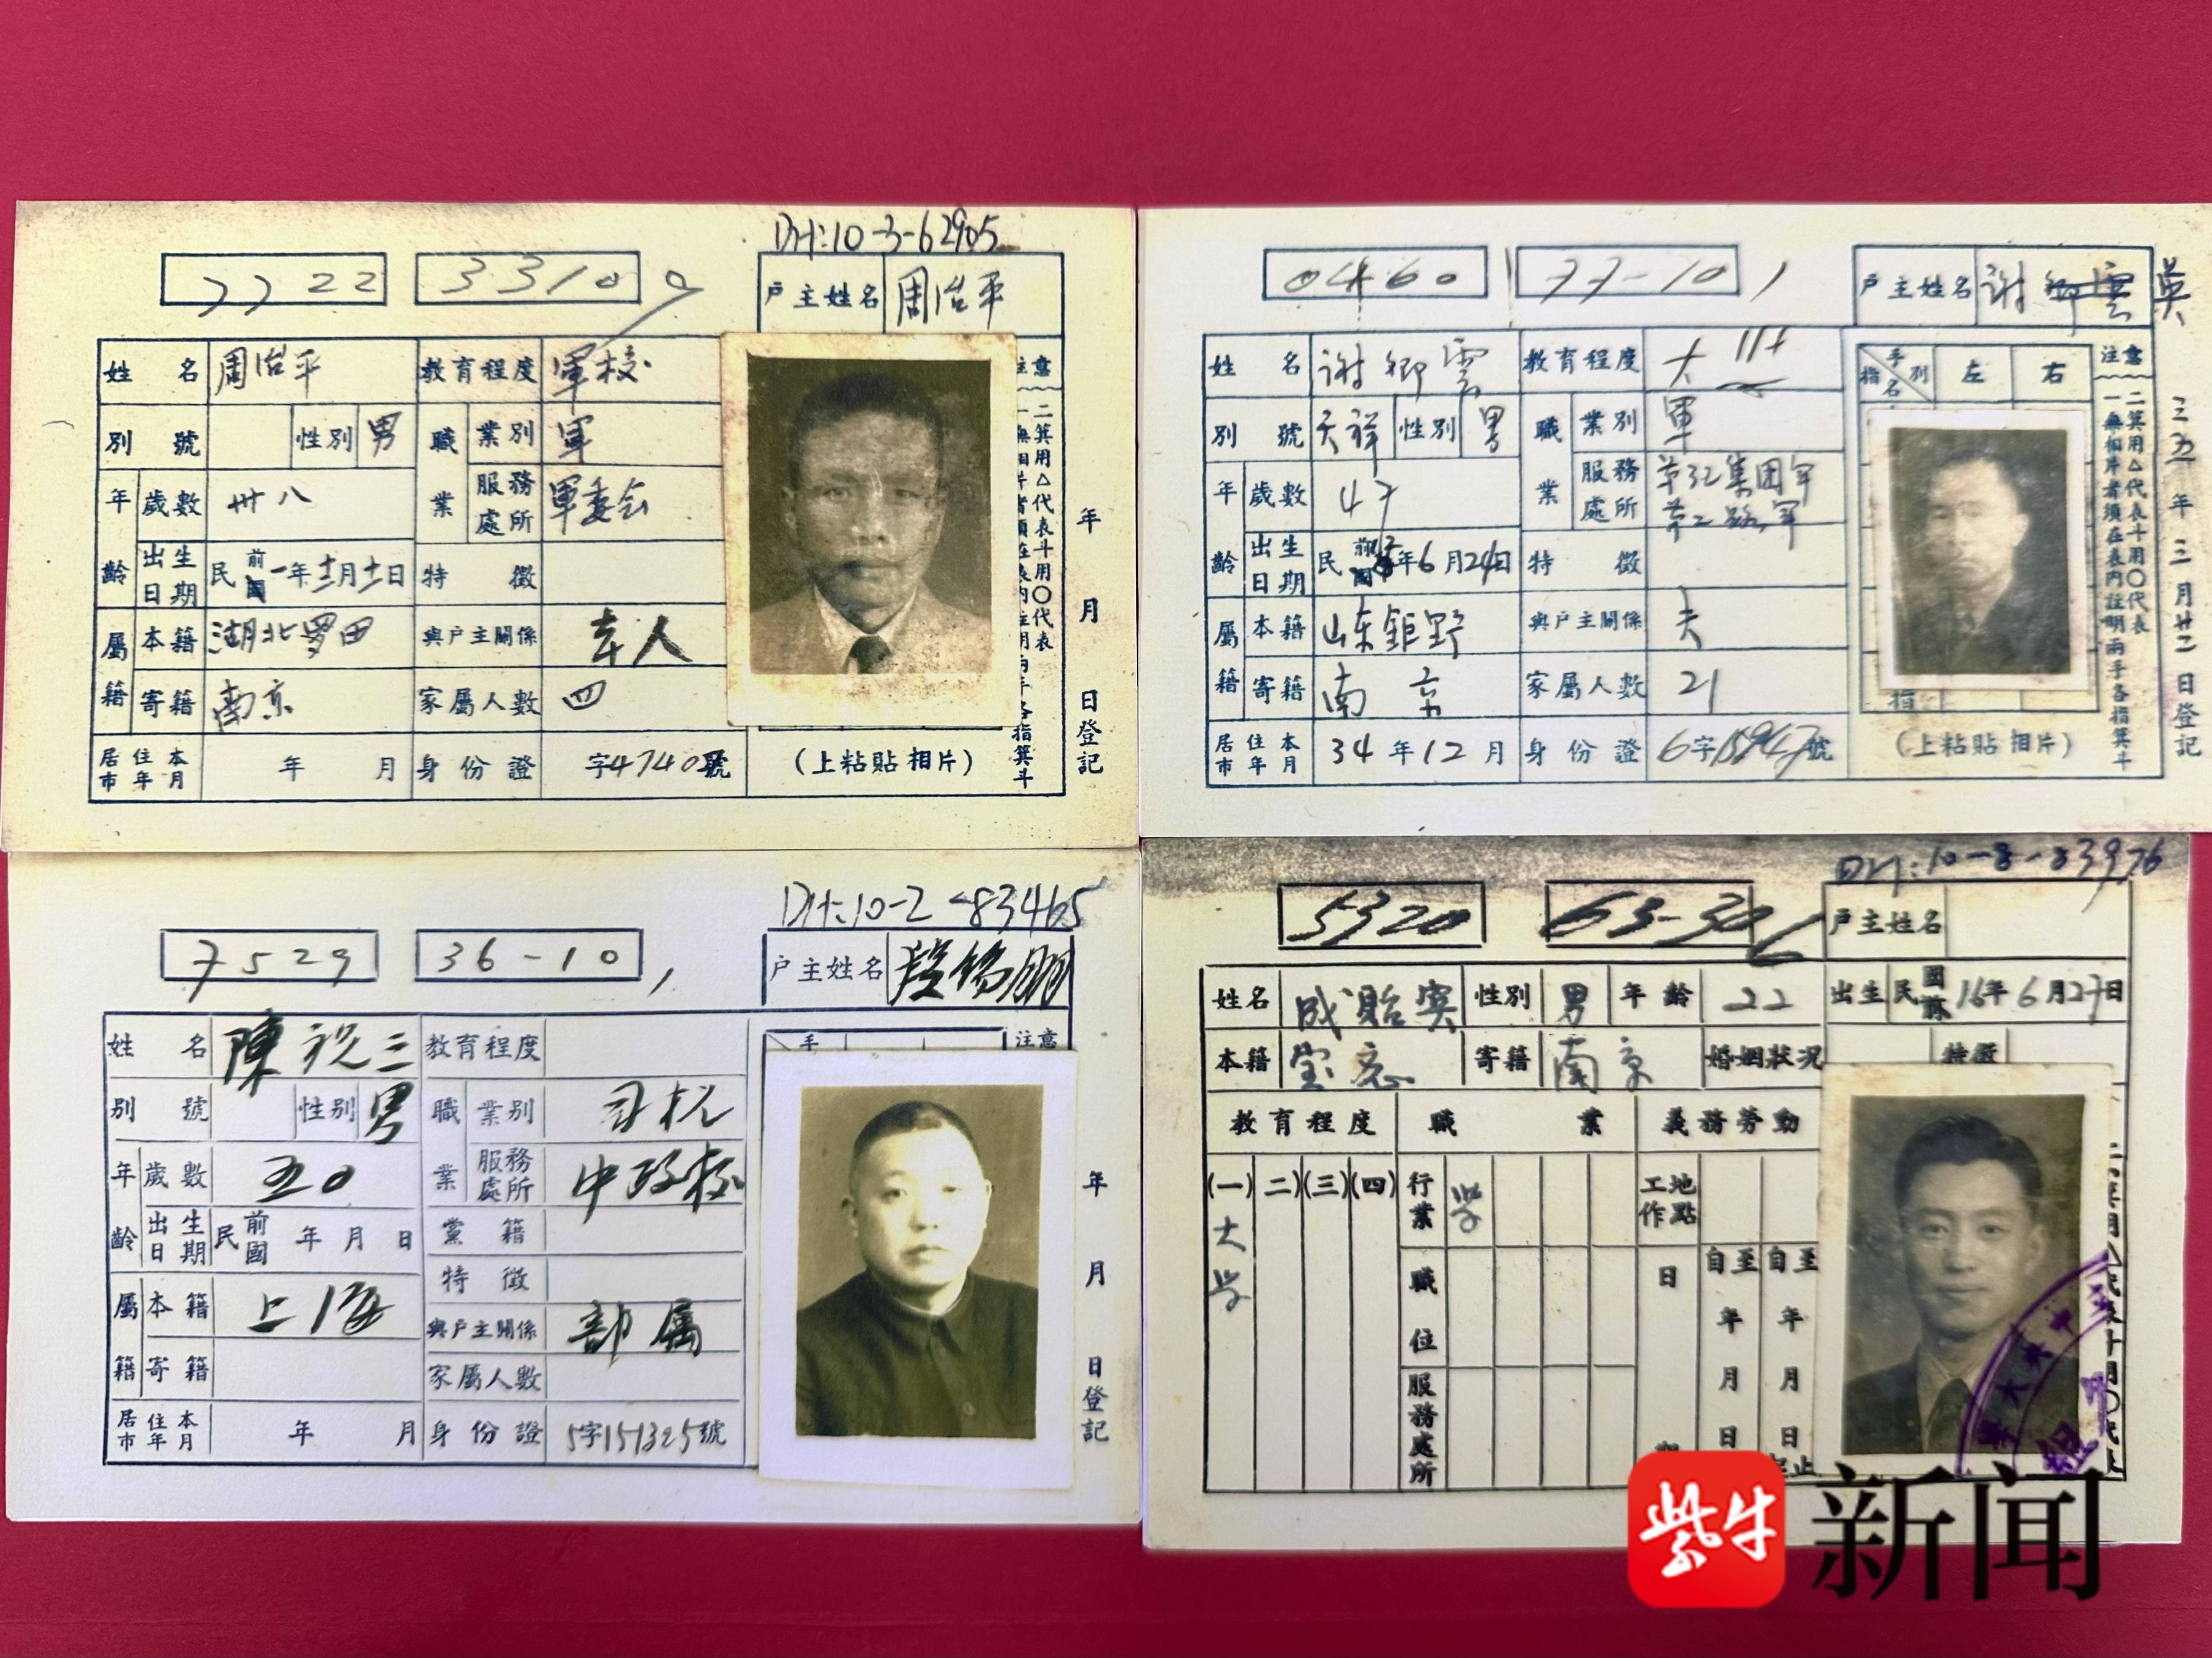 DH:10-3-62905
7722 3310
户主姓名 周治平
姓名 周治平 教育程度 軍校
別號 性別 男 職業 業別 軍
年齡 歲數 卅八 服務處所 軍委会
出生日期 民前國一年十二月十二日 特徵
屬籍 本籍 湖北罗田 與户主關係 本人
寄籍 南京 家屬人數 四
居住本市年月 年 月 身份證 字4740號
(上粘貼相片)
注意
年 月 日登記
0460 77-10
户主姓名 谢卿雲 吳
姓名 谢卿雲 教育程度 大
別號 天祥 性別 男 職業 業別 軍
年齡 歲數 47 服務處所 第32集团军
第二路军
出生日期 民前國 年6月24日 特徵
屬籍 本籍 山东鉅野 與户主關係 夫
寄籍 南京 家屬人數 21
居住本市年月 34年12月 身份證 6字 號
手別 指名 左 右
指
(上粘貼相片)
注意
一無相片者須在表內註明兩手各指箕斗
二箕用△代表斗用〇代表
三五年三月廿二日登記
DH:10-2-83465
7529 36-10
户主姓名 段锡朋
姓名 陳祝三 教育程度
別號 性別 男 職業 業別 司机
年齡 歲數 五0 服務處所 中政校
出生日期 民前國 年 月 日 黨籍
特徵
屬籍 本籍 上海 與户主關係 部属
寄籍 家屬人數
居住本市年月 年 月 身份證 5字151325號
手
注意
年 月 日登記
DH:10-8-83976
5320 63-30
户主姓名
姓名 成貽宾 性別 男 年齡 22 出生 民國前16年6月27日
本籍 宝应 寄籍 南京 婚姻狀况 特徵
教育程度 職業 義務勞動
(一)(二)(三)(四) 行業 学 工作地點
大学
職位 日 自至 自至
年 年
服務處所 月 月
期 日 日
起止
紫牛 新闻